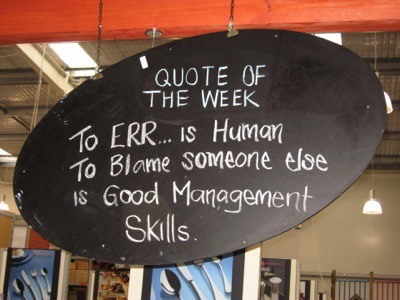 QUOTE OF
THE WEEK
To ERR... is Human
To Blame someone else
is Good Management
Skills.